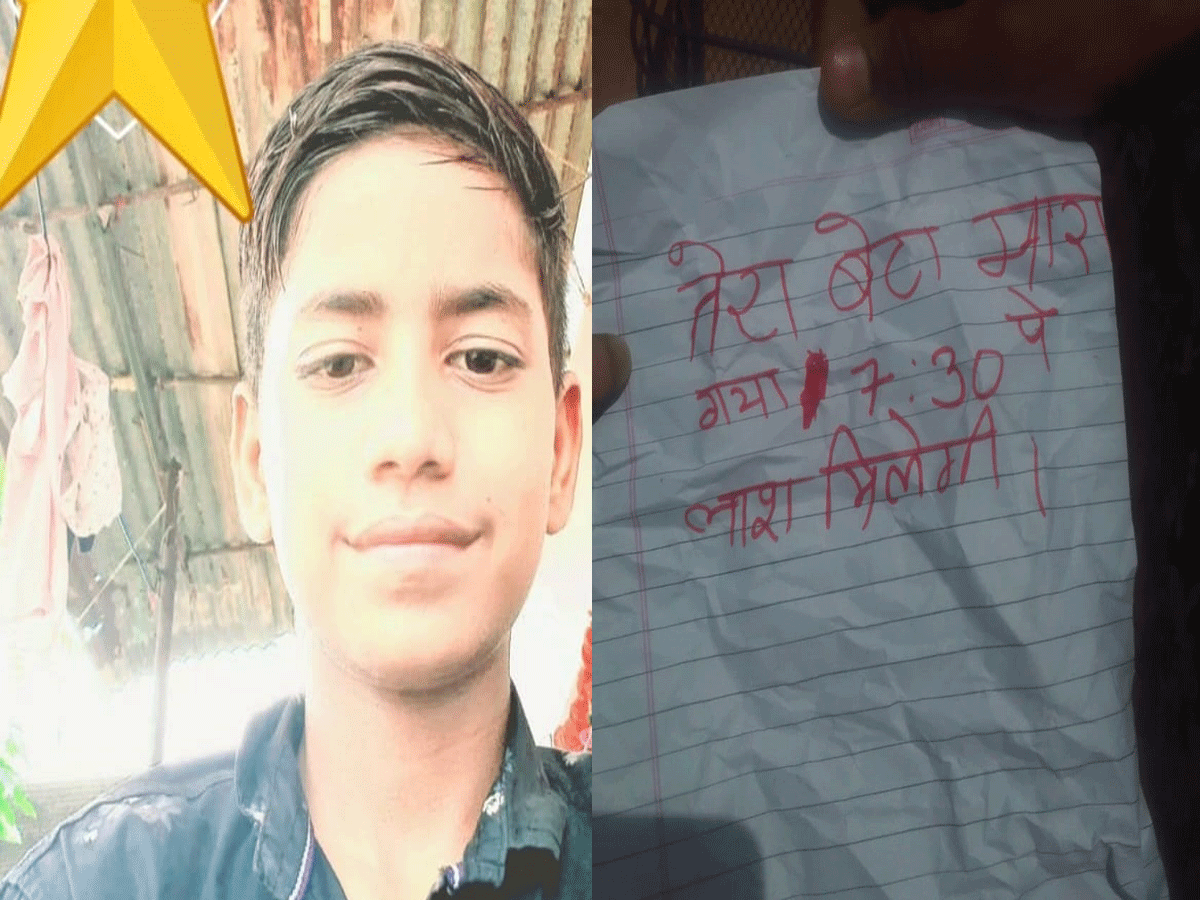 तेरा बेटा मारा
गया 7:30 पे
लाश मिलेगी।